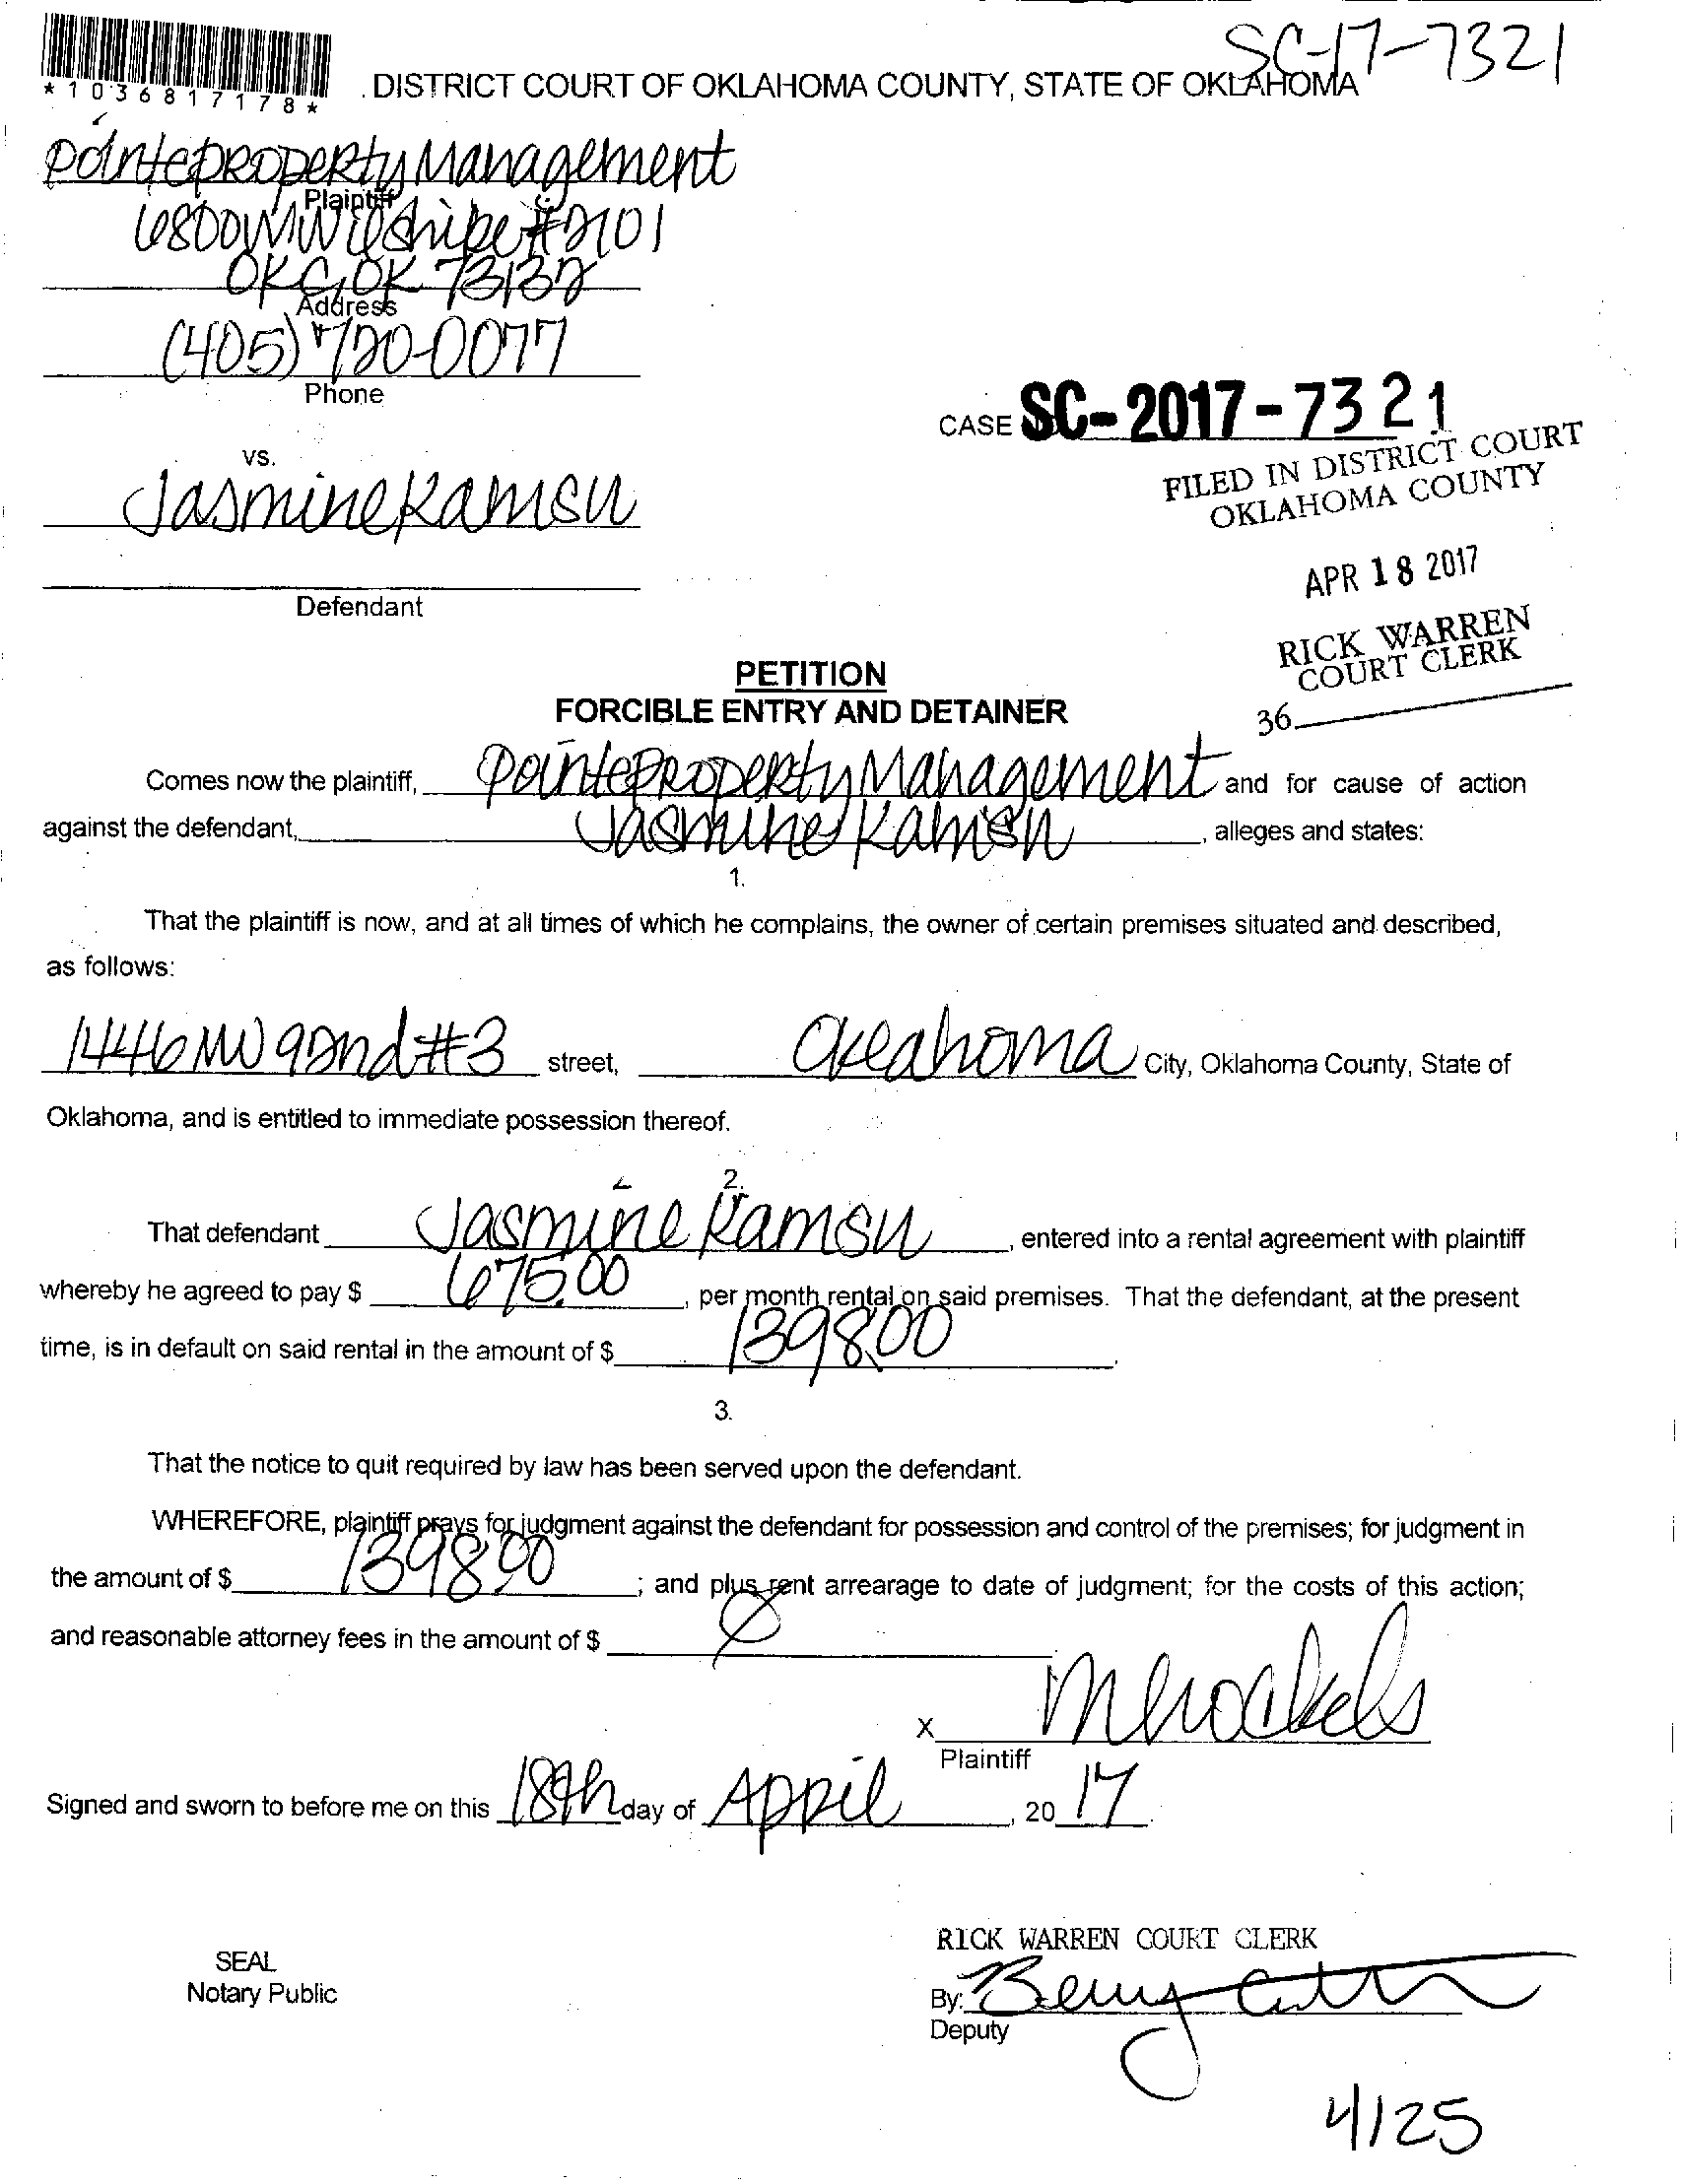 SC-17-7321
*1036817178*
DISTRICT COURT OF OKLAHOMA COUNTY, STATE OF OKLAHOMA
Pointe Property Management
Plaintiff
6800 W Wilshire #2101
OKC, OK 73132
Address
(405) 720-0077
Phone
CASE SC-2017-7321
FILED IN DISTRICT COURT
OKLAHOMA COUNTY
vs.
Jasmine Kamsu
APR 18 2017
Defendant
RICK WARREN
COURT CLERK
36
PETITION
FORCIBLE ENTRY AND DETAINER
Comes now the plaintiff, Pointe Property Management and for cause of action
against the defendant, Jasmine Kamsu, alleges and states:
1.
That the plaintiff is now, and at all times of which he complains, the owner of certain premises situated and described,
as follows:
1446 NW 92nd #3 street, Oklahoma City, Oklahoma County, State of
Oklahoma, and is entitled to immediate possession thereof.
2.
That defendant Jasmine Kamsu, entered into a rental agreement with plaintiff
whereby he agreed to pay $ 675.00, per month rental on said premises. That the defendant, at the present
time, is in default on said rental in the amount of $ 1398.00.
3.
That the notice to quit required by law has been served upon the defendant.
WHEREFORE, plaintiff prays for judgment against the defendant for possession and control of the premises; for judgment in
the amount of $ 1398.00; and plus rent arrearage to date of judgment; for the costs of this action;
and reasonable attorney fees in the amount of $
X
Plaintiff
Signed and sworn to before me on this 18th day of April, 20 17
RICK WARREN COURT CLERK
SEAL
Notary Public
By:
Deputy
4/25